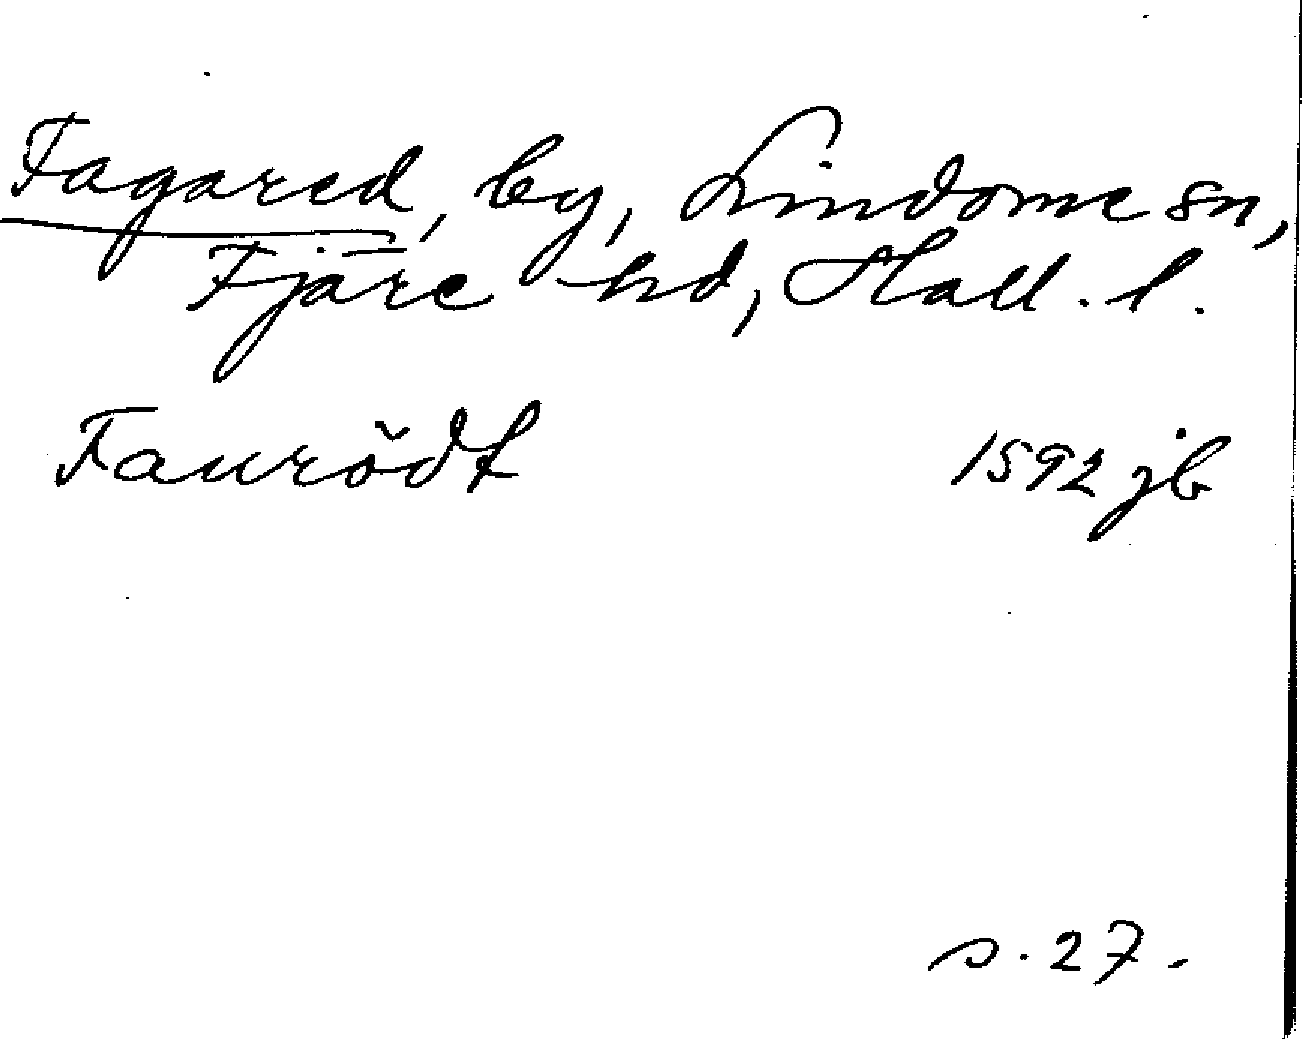 Fagared, by, Lindome sn,
Fjäre hd, Hall. l.
Faurödt 1592 jb
s. 27.